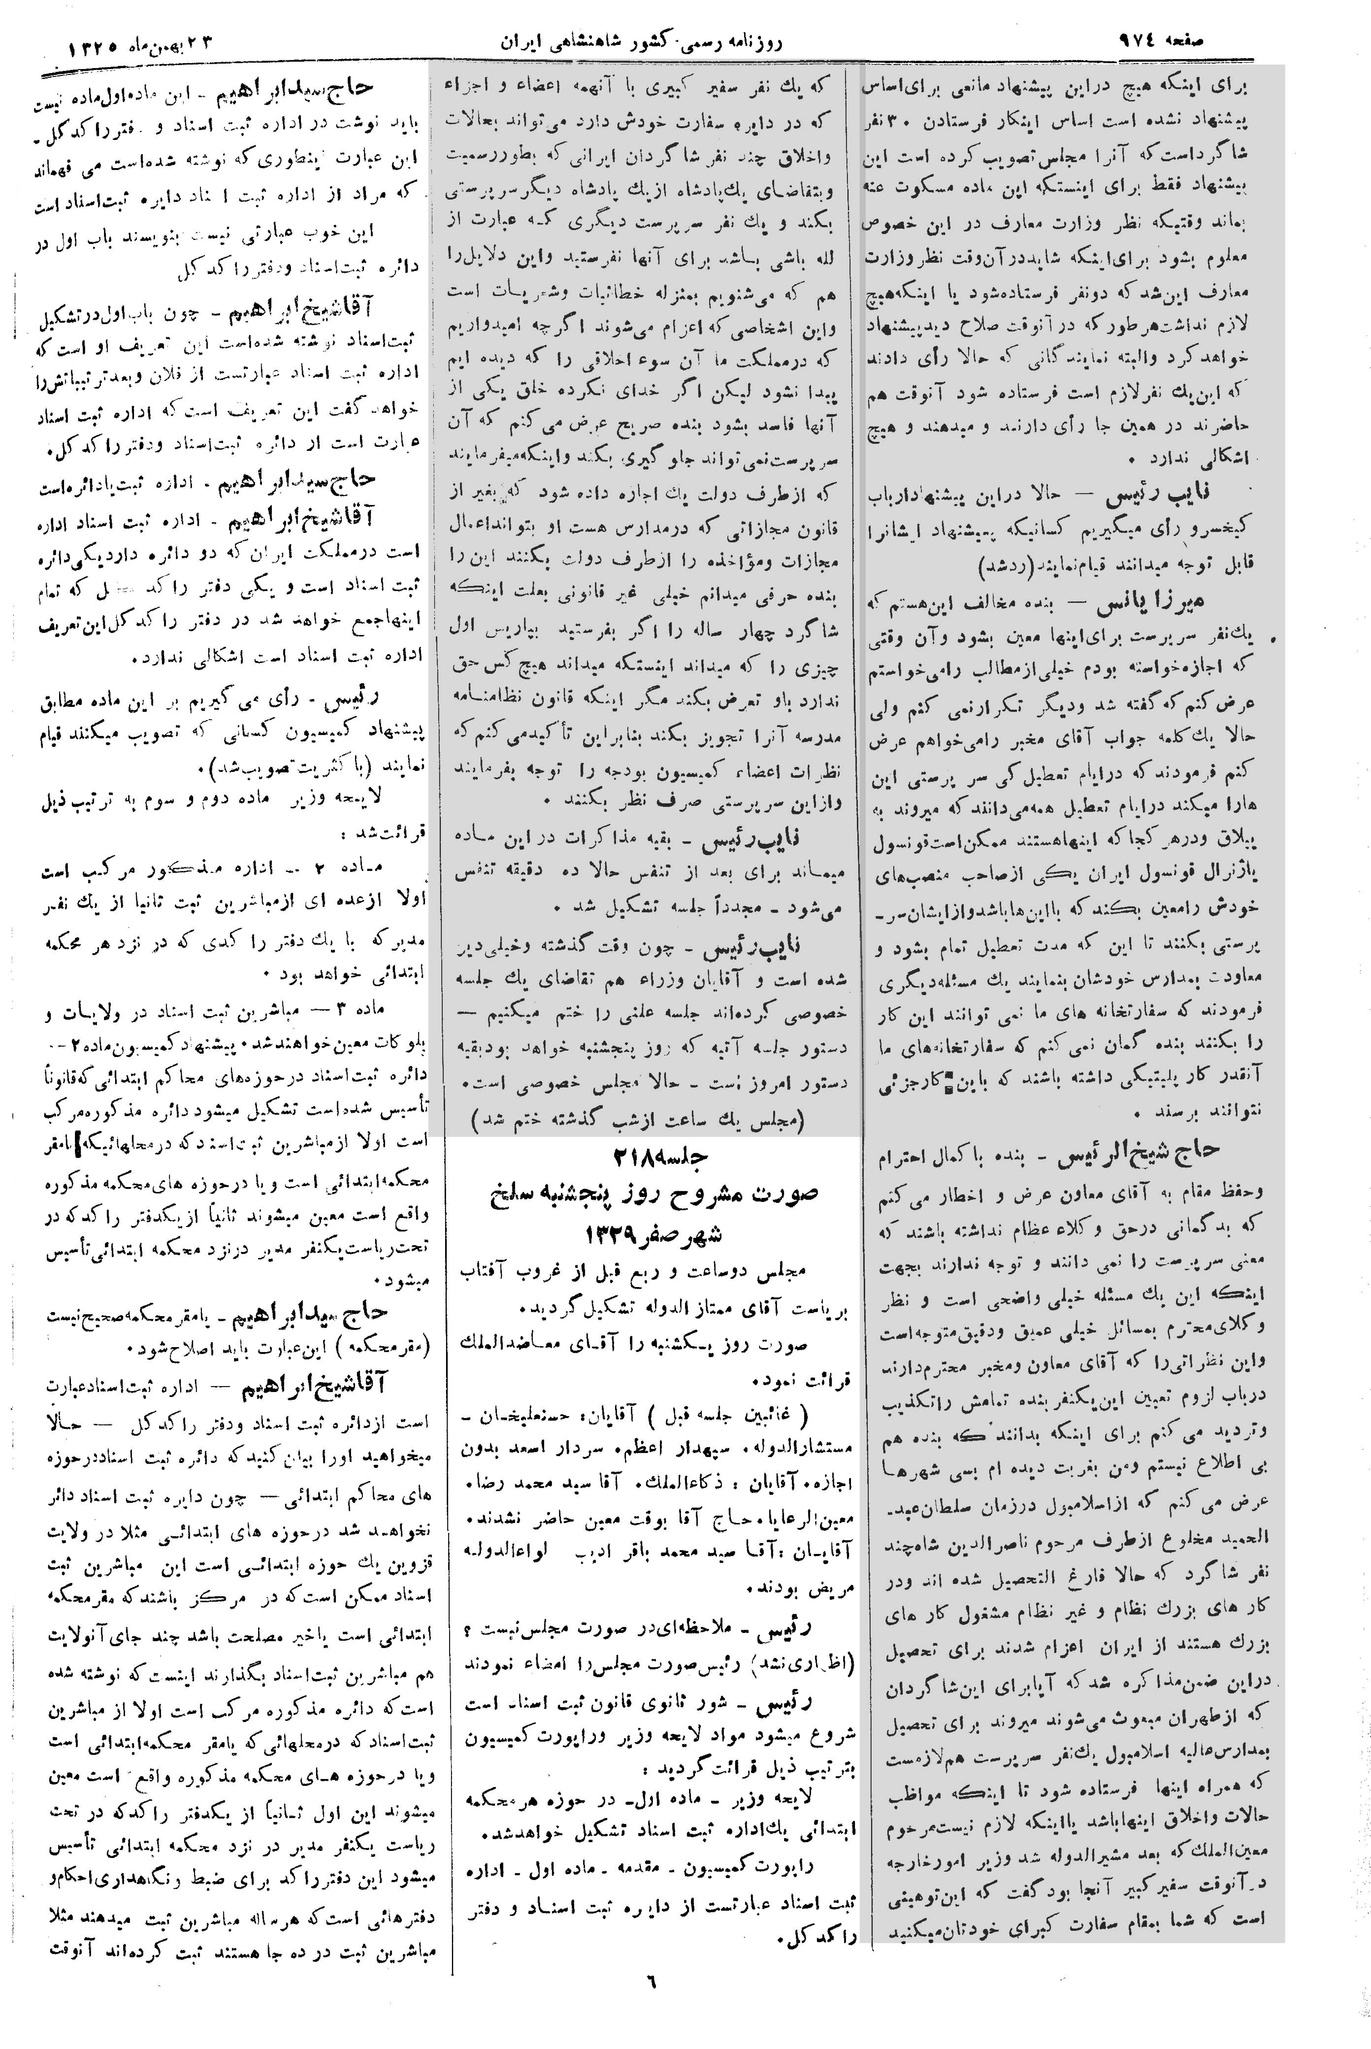 صفحه ۹۷۴
روزنامه رسمی کشور شاهنشاهی ایران
۲۳ بهمن ماه ۱۳۲۵
برای اینکه هیچ دراین پیشنهاد مانعی برای اساس
پیشنهاد نشده است اساس اینکار فرستادن ۳۰ نفر
شاگرد است که آنرا مجلس تصویب کرده است این
پیشنهاد فقط برای اینستکه این ماده مسکوت عنه
بماند وقتیکه نظر وزارت معارف در این خصوص
معلوم بشود برای اینکه شاید در آن وقت نظر وزارت
معارف این شد که دو نفر فرستاده شود یا اینکه هیچ
لازم نداشت هر طور که در آنوقت صلاح دید پیشنهاد
خواهد کرد والبته نمایندگانی که حالا رأی دادند
که این یك نفر لازم است فرستاده شود آنوقت هم
حاضرند در همین جا رأی دارند و میدهند و هیچ
اشکالی ندارد .
نایب رئیس — حالا در این پیشنهاد ارباب
کیخسرو رأی میگیریم کسانیکه پیشنهاد ایشانرا
قابل توجه میدانند قیام نمایند (رد شد)
میرزا یانس — بنده مخالف این هستم که
یك نفر سرپرست برای اینها معین بشود وآن وقتی
که اجازه خواسته بودم خیلی از مطالب را می خواستم
عرض کنم که گفته شد ودیگر تکرار نمی کنم ولی
حالا یك کلمه جواب آقای مخبر را می خواهم عرض
کنم فرمودند که در ایام تعطیل کی سر پرستی این
هارا میکند در ایام تعطیل همه می دانند که میروند به
ییلاق ودر هر کجا که اینها هستند ممکن است قونسول
یا ژنرال قونسول ایران یکی از صاحب منصب های
خودش را معین بکند که با این ها باشد و از ایشان سر-
پرستی بکنند تا این که مدت تعطیل تمام بشود و
معاودت بمدارس خودشان بنمایند یك مسئله دیگری
فرمودند که سفارتخانه های ما نمی توانند این کار
را بکنند بنده گمان نمی کنم که سفارتخانه های ما
آنقدر کار پلیتیکی داشته باشند که باین کار جزئی
نتوانند برسند .
حاج شیخ الرئیس - بنده با کمال احترام
وحفظ مقام به آقای معاون عرض و اخطار می کنم
که بد گمانی در حق و کلاء عظام نداشته باشند که
معنی سرپرست را نمی دانند و توجه ندارند بجهت
اینکه این یك مسئله خیلی واضحی است و نظر
وکلای محترم بمسائل خیلی عمیق ودقیق متوجه است
واین نظراتی را که آقای معاون ومخبر محترم دارند
در باب لزوم تعیین این یکنفر بنده تمامش را تکذیب
وتردید می کنم برای اینکه بدانند که بنده هم
بی اطلاع نیستم ومن بغربت دیده ام بسی شهرها
عرض می کنم که از اسلامبول در زمان سلطان عبد-
الحمید مخلوع از طرف مرحوم ناصرالدین شاه چند
نفر شاگرد که حالا فارغ التحصیل شده اند ودر
کار های بزرك نظام و غیر نظام مشغول کار های
بزرك هستند از ایران اعزام شدند برای تحصیل
در این ضمن مذاکره شد که آیا برای این شاگردان
که از طهران مبعوث می شوند میروند برای تحصیل
بمدارس عالیه اسلامبول یك نفر سرپرست هم لازمست
که همراه اینها فرستاده شود تا اینکه مواظب
حالات واخلاق اینها باشد یا اینکه لازم نیست مرحوم
معین الملك که بعد مشیر الدوله شد وزیر امور خارجه
در آنوقت سفیر کبیر آنجا بود گفت که این توهینی
است که شما بمقام سفارت کبرای خودتان میکنید
که یك نفر سفیر کبیری با آنهمه اعضاء و اجزاء
که در دایره سفارت خودش دارد می تواند بحالات
واخلاق چند نفر شاگردان ایرانی که بطور رسمیت
وبتقاضای یك پادشاه از یك پادشاه دیگر سر پرستی
بکند و یك نفر سرپرست دیگری که عبارت از
لله باشی باشد برای آنها نفرستید واین دلایل را
هم که می شنویم بمنزله خطابیات وشعریات است
واین اشخاصی که اعزام می شوند اگرچه امیدواریم
که در مملکت ما آن سوء اخلاقی را که دیده ایم
پیدا نشود لیکن اگر خدای نکرده خلق یکی از
آنها فاسد بشود بنده صریح عرض می کنم که آن
سرپرست نمی تواند جلو گیری بکند واینکه میفرمایند
که از طرف دولت یك اجازه داده شود که بغیر از
قانون مجازاتی که در مدارس هست او بتواند اعمال
مجازات ومؤاخذه را از طرف دولت بکنند این را
بنده حرفی میدانم خیلی غیر قانونی بعلت اینکه
شاگرد چهار ساله را اگر بفرستید بپاریس اول
چیزی را که میداند اینستکه میداند هیچ کس حق
ندارد باو تعرض بکند مگر اینکه قانون نظامنامه
مدرسه آنرا تجویز بکند بنابراین تأکید می کنم که
نظرات اعضاء کمیسیون بودجه را توجه بفرمایند
واز این سرپرستی صرف نظر بکنند .
نایب رئیس - بقیه مذاکرات در این ماده
میماند برای بعد از تنفس حالا ده دقیقه تنفس
می شود - مجدداً جلسه تشکیل شد .
نایب رئیس - چون وقت گذشته وخیلی دیر
شده است و آقایان وزراء هم تقاضای یك جلسه
خصوصی کرده اند جلسه علنی را ختم میکنیم —
دستور جلسه آتیه که روز پنجشنبه خواهد بود بقیه
دستور امروز است - حالا مجلس خصوصی است.
(مجلس یك ساعت از شب گذشته ختم شد)
جلسه ۲۱۸
صورت مشروح روز پنجشنبه سلخ
شهر صفر ۱۳۲۹
مجلس دوساعت و ربع قبل از غروب آفتاب
بریاست آقای ممتاز الدوله تشکیل گردید.
صورت روز یکشنبه را آقای معاضد الملك
قرائت نمود.
( غائبین جلسه قبل ) آقایان: حسنعلیخان -
مستشارالدوله. سپهدار اعظم. سردار اسعد بدون
اجازه. آقایان : ذکاء الملك. آقا سید محمد رضا.
معین الرعایا. حاج آقا بوقت معین حاضر نشدند.
آقایان : آقا سید محمد باقر ادیب لواء الدوله
مریض بودند.
رئیس - ملاحظه ای در صورت مجلس نیست ؟
(اظهاری نشد) رئیس صورت مجلس را امضاء نمودند
رئیس - شور ثانوی قانون ثبت اسناد است
شروع میشود مواد لایحه وزیر وراپورت کمیسیون
بترتیب ذیل قرائت گردید :
لایحه وزیر - ماده اول- در حوزه هر محکمه
ابتدائی یك اداره ثبت اسناد تشکیل خواهد شد.
راپورت کمیسیون - مقدمه - ماده اول - اداره
ثبت اسناد عبارتست از دایره ثبت اسناد و دفتر
راکد کل.
حاج سید ابراهیم - این ماده اول ماده نیست
باید نوشت در اداره ثبت اسناد و دفتر راکد کل -
این عبارت اینطوری که نوشته شده است می فهماند
که مراد از اداره ثبت اسناد دایره ثبت اسناد است
این خوب عبارتی نیست بنویسند باب اول در
دائره ثبت اسناد ودفتر راکد کل
آقا شیخ ابراهیم - چون باب اول در تشکیل
ثبت اسناد نوشته شده است این تعریف او است که
اداره ثبت اسناد عبارتست از فلان وبعد ترتیباتش را
خواهد گفت این تعریف است که اداره ثبت اسناد
عبارت است از دائره ثبت اسناد ودفتر راکد کل.
حاج سید ابراهیم - اداره ثبت یا دائره است
آقا شیخ ابراهیم - اداره ثبت اسناد اداره
است در مملکت ایران که دو دائره دارد یکی دائره
ثبت اسناد است و یکی دفتر راکد کل که تمام
اینها جمع خواهد شد در دفتر راکد کل این تعریف
اداره ثبت اسناد است اشکالی ندارد.
رئیس - رأی می گیریم بر این ماده مطابق
پیشنهاد کمیسیون کسانی که تصویب میکنند قیام
نمایند (باکثریت تصویب شد).
لایحه وزیر ماده دوم و سوم به ترتیب ذیل
قرائت شد :
ماده ۲ - اداره مذکور مرکب است
اولا از عده ای از مباشرین ثبت ثانیا از یك نفر
مدیر که با یك دفتر راکدی که در نزد هر محکمه
ابتدائی خواهد بود .
ماده ۳ — مباشرین ثبت اسناد در ولایات و
بلوکات معین خواهند شد. پیشنهاد کمیسیون ماده ۲ -
دائره ثبت اسناد در حوزه های محاکم ابتدائی که قانوناً
تأسیس شده است تشکیل میشود دائره مذکوره مرکب
است اولا از مباشرین ثبت اسناد که در محلهائیکه یا مقر
محکمه ابتدائی است ویا در حوزه های محکمه مذکوره
واقع است معین میشوند ثانیاً از یکدفتر راکد که در
تحت ریاست یکنفر مدیر در نزد محکمه ابتدائی تأسیس
میشود.
حاج سید ابراهیم - یا مقر محکمه صحیح نیست
(مقر محکمه) این عبارت باید اصلاح شود.
آقا شیخ ابراهیم — اداره ثبت اسناد عبارت
است از دائره ثبت اسناد ودفتر راکد کل — حالا
میخواهید اورا بیان کنید که دائره ثبت اسناد در حوزه
های محاکم ابتدائی — چون دایره ثبت اسناد دائر
نخواهد شد در حوزه های ابتدائی مثلا در ولایت
قزوین یك حوزه ابتدائی است این مباشرین ثبت
اسناد ممکن است که در مرکز باشند که مقر محکمه
ابتدائی است یا خیر مصلحت باشد چند جای آنولایت
هم مباشرین ثبت اسناد بگذارند اینست که نوشته شده
است که دائره مذکوره مرکب است اولا از مباشرین
ثبت اسناد که در محلهائی که یا مقر محکمه ابتدائی است
ویا در حوزه های محکمه مذکوره واقع است معین
میشوند این اول ثانیاً از یکدفتر راکد که در تحت
ریاست یکنفر مدیر در نزد محکمه ابتدائی تأسیس
میشود این دفتر راکد برای ضبط ونگاهداری احکام و
دفترهائی است که هر ساله مباشرین ثبت میدهند مثلا
مباشرین ثبت در ده جا هستند ثبت کرده اند آنوقت
۶